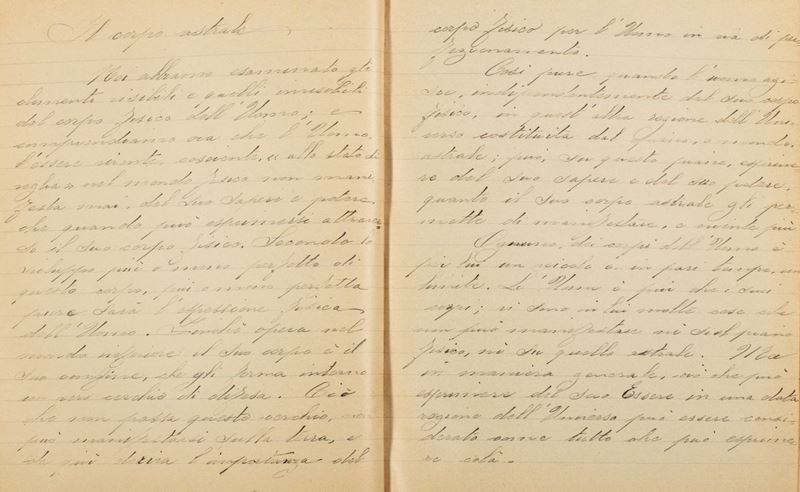 Il corpo astrale
Noi abbiamo esaminato gli
elementi visibili e quelli invisibili
del corpo fisico dell'Uomo; e
comprendiamo ora che l'Uomo,
l'essere vivente, cosciente, "allo stato di
veglia" nel mondo fisico non mani
festa mai del suo sapere e potere,
che quando può esprimersi attraver
so il suo corpo fisico. Secondo lo
sviluppo più o meno perfetto di
questo corpo, più o meno perfetta
pure sarà l'espressione fisica
dell'Uomo. Finchè opera nel
mondo inferiore il suo corpo è il
suo confine, che gli forma intorno
un vero cerchio di difesa. Ciò
che non passa questo cerchio, non
può manifestarsi sulla terra, e
da più deriva l'importanza del
corpo fisico per l'Uomo in via di per
fezionamento.
Così pure, quando l'uomo agi
sce, indipendentemente dal suo corpo
fisico, in quell'altra regione dell'Uni
verso costituita dal piano, o mondo,
astrale; può, su questo piano, esprime
re del suo sapere e del suo potere,
quanto il suo corpo astrale gli per-
mette di manifestare, e niente più
Ognuno dei corpi dell'Uomo è
per lui un veicolo e in pari tempo, un
limite. L'Uomo è più che i suoi
corpi; vi sono in lui molte cose che
non può manifestare nè sul piano
fisico, nè su quello astrale. Ma
in maniera generale, ciò che può
esprimere del suo Essere in una data
regione dell'Universo può essere consi-
derato come tutto che può esprime
re colà.